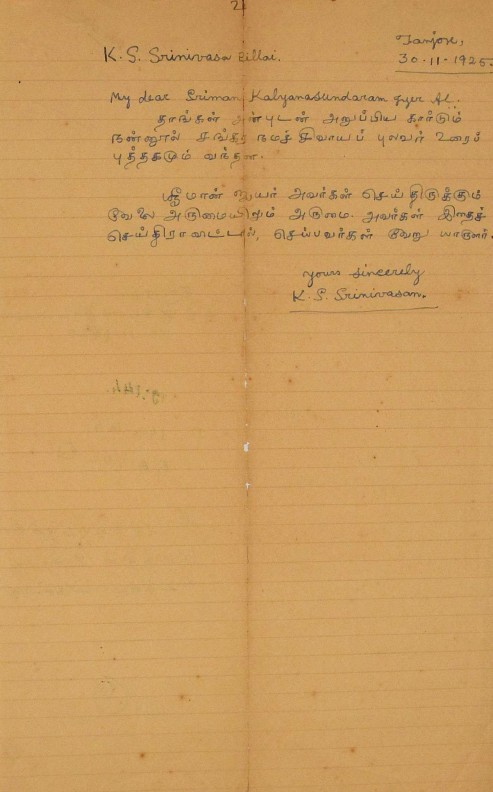 2
Tanjore,
30-11-1925.
K. S. Srinivasa Pillai.
My dear Sriman Kalyanasundaram Iyer Av:
தாங்கள் அன்புடன் அனுப்பிய கார்டும்
நன்னூல் சங்கர நமச்சிவாயப் புலவர் உரைப்
புத்தகமும் வந்தன.
ஸ்ரீமான் ஐயர் அவர்கள் செய்திருக்கும்
வேலை அருமையினும் அருமை. அவர்கள் இதைச்
செய்திராவிட்டால், செய்பவர்கள் வேறு யாருளர்.
yours sincerely
K. S. Srinivasan.